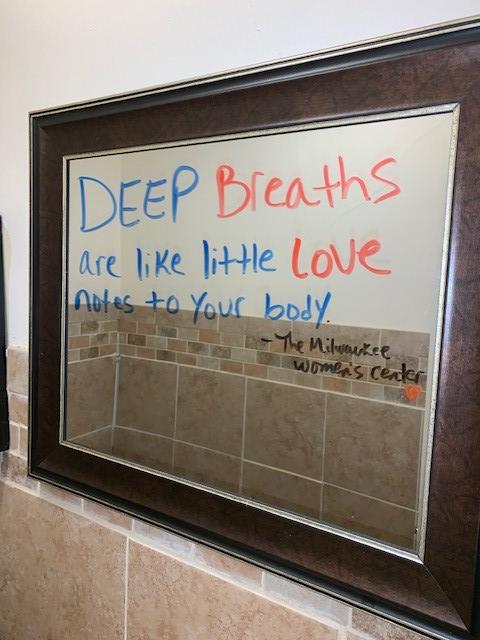 DEEP Breaths
are like little Love
notes to your body.
- The Milwaukee
Women's center